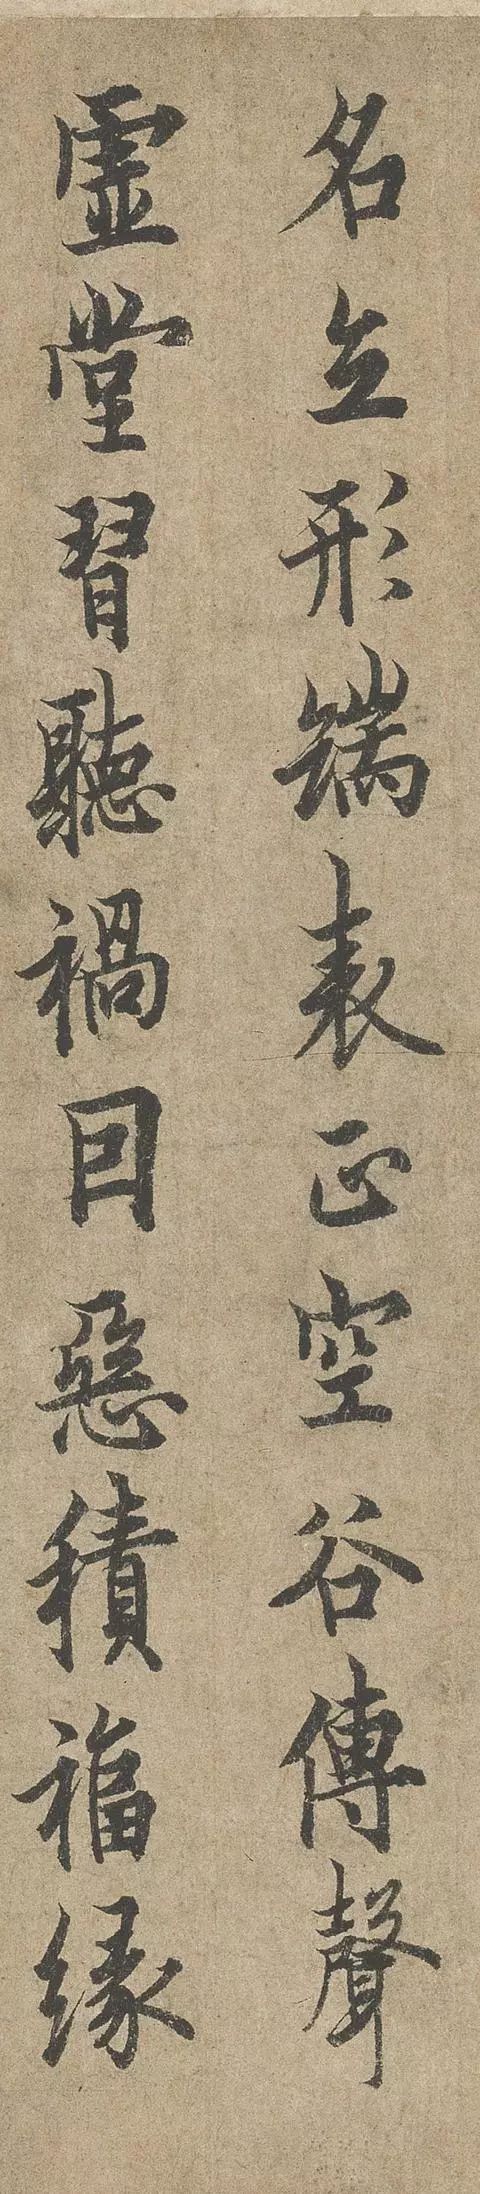 名立形端表正空谷傳聲
虛堂習聽禍因惡積福緣